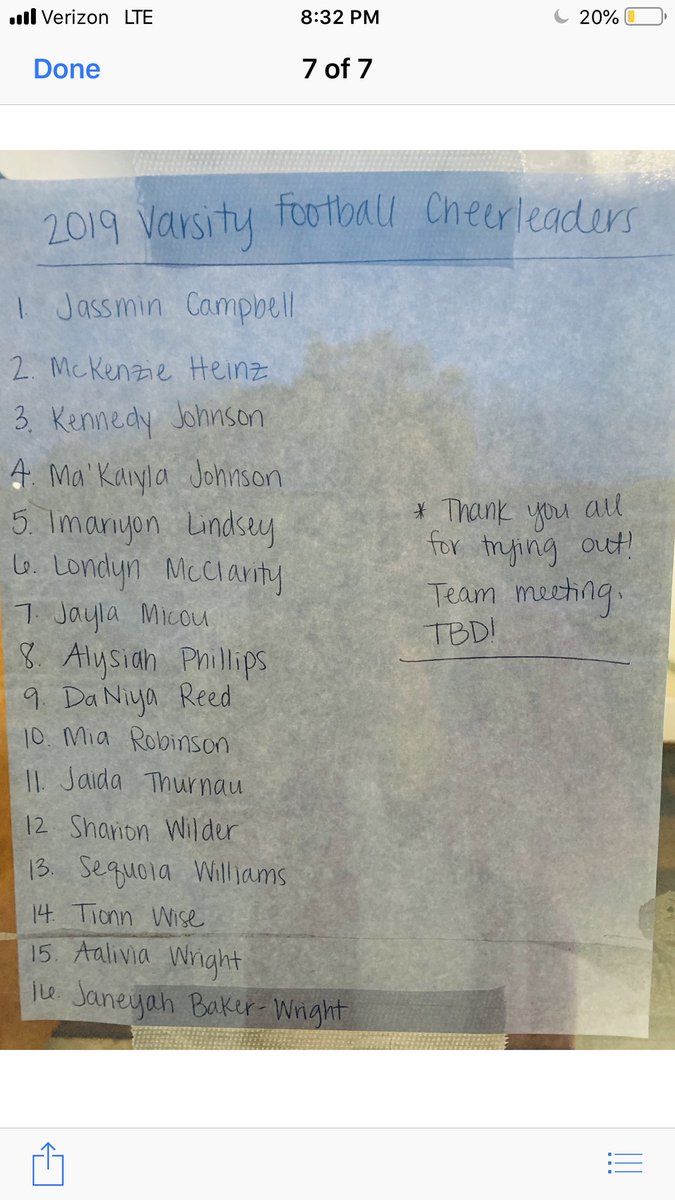 Verizon LTE 8:32 PM 20%
Done 7 of 7
2019 Varsity Football Cheerleaders
1. Jassmin Campbell
2. McKenzie Heinz
3. Kennedy Johnson
4. Ma'Kaiyla Johnson
5. Imariyon Lindsey
6. Londyn McClarity
7. Jayla Micou
8. Alysiah Phillips
9. DaNiya Reed
10. Mia Robinson
11. Jaida Thurnau
12 Sharion Wilder
13. Sequoia Williams
14. Tionn Wise
15. Aalivia Wright
16. Janeyah Baker-Wright
* Thank you all
for trying out!
Team meeting.
TBD!